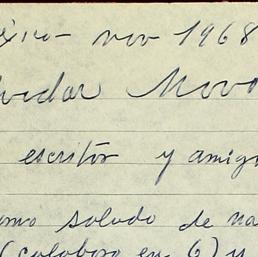 éxico - nov 1968
vador Novo
escritor y amigo
omo saludo de na
(colaboro en 6) y